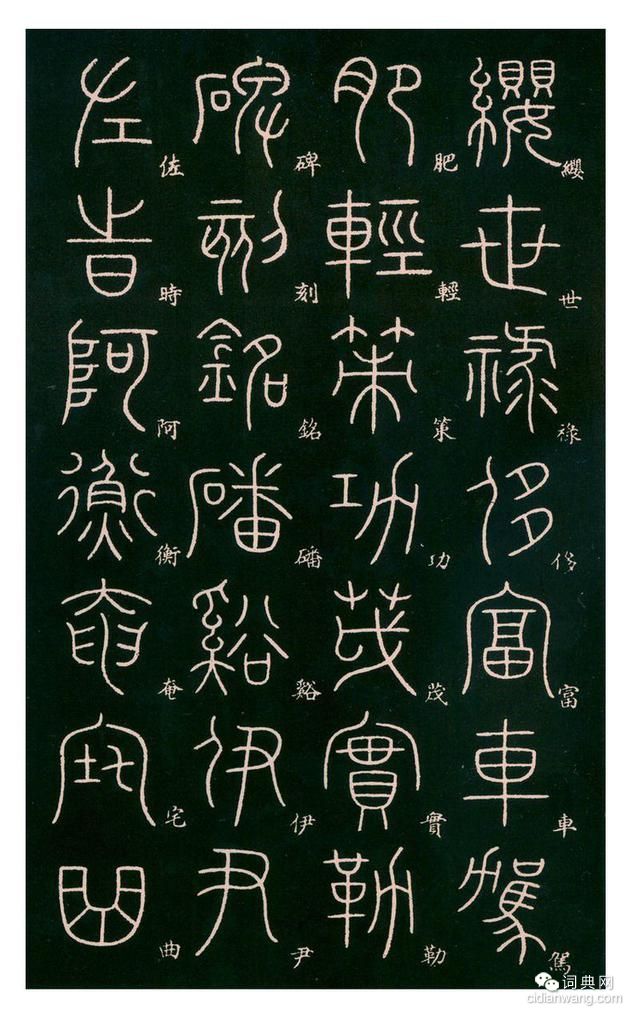 纓世祿侈富車駕
肥輕策功茂實勒
碑刻銘磻谿伊尹
佐時阿衡奄宅曲
词典网
cidianwang.com